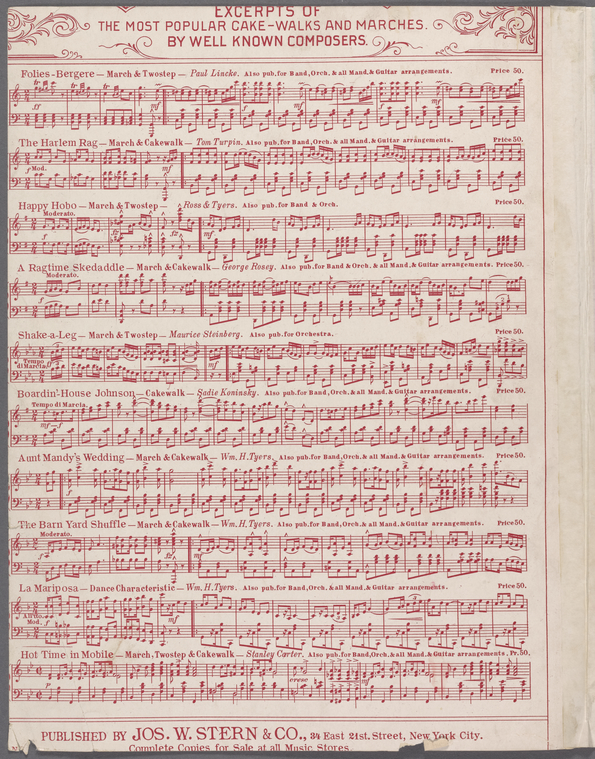 EXCERPTS OF
THE MOST POPULAR CAKE-WALKS AND MARCHES.
BY WELL KNOWN COMPOSERS.
Folies-Bergere — March & Twostep — Paul Lincke. Also pub. for Band, Orch. & all Mand. & Guitar arrangements. Price 50.
ff mf f mf
The Harlem Rag — March & Cakewalk — Tom Turpin. Also pub. for Band, Orch. & all Mand. & Guitar arrangements. Price 50.
f Mod. mf
Happy Hobo — March & Twostep — Ross & Tyers. Also pub. for Band & Orch. Price 50.
Moderato.
f fz fz mf
A Ragtime Skedaddle — March & Cakewalk — George Rosey. Also pub. for Band & Orch. & all Mand. & Guitar arrangements. Price 50.
Moderato.
f
Shake-a-Leg — March & Twostep — Maurice Steinberg. Also pub. for Orchestra. Price 50.
Tempo di Marcia. mf
Boardin'-House Johnson — Cakewalk — Sadie Koninsky. Also pub. for Band, Orch. & all Mand. & Guitar arrangements. Price 50.
Tempo di Marcia
mf-f
Aunt Mandy's Wedding — March & Cakewalk — Wm. H. Tyers. Also pub. for Band, Orch. & all Mand. & Guitar arrangements. Price 50.
The Barn Yard Shuffle — March & Cakewalk — Wm. H. Tyers. Also pub. for Band, Orch. & all Mand. & Guitar arrangements. Price 50.
Moderato.
f fz mf
La Mariposa — Dance Characteristic — Wm. H. Tyers. Also pub. for Band, Orch. & all Mand. & Guitar arrangements. Price 50.
Mod. f mf
Hot Time in Mobile — March, Twostep & Cakewalk — Stanley Carter. Also pub. for Band, Orch. & all Mand. & Guitar arrangements. Pr. 50.
p cresc f
PUBLISHED BY JOS. W. STERN & CO., 34 East 21st. Street, New York City.
Complete Copies for Sale at all Music Stores.